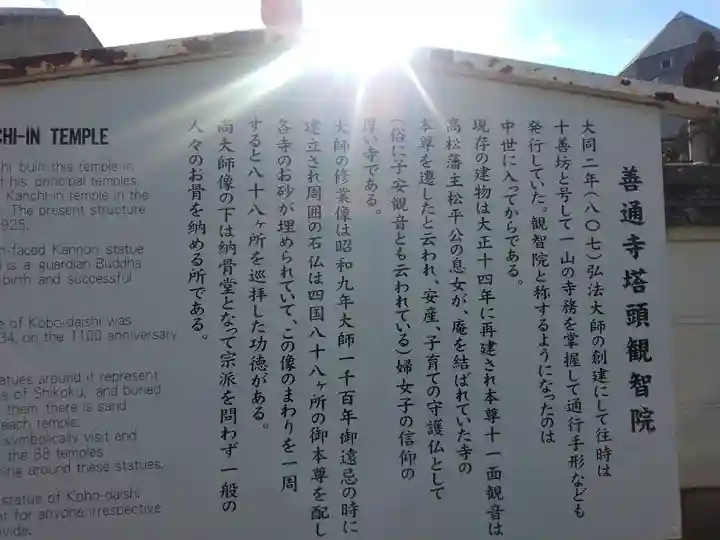 善通寺塔頭観智院
大同二年(八〇七)弘法大師の創建にして往時は
十善坊と号して一山の寺務を掌握して通行手形なども
発行していた。観智院と称するようになったのは
中世に入ってからである。
現存の建物は大正十四年に再建され本尊十一面観音は
高松藩主松平公の息女が、庵を結ばれていた寺の
本尊を遷したと云われ、安産、子育ての守護仏として
(俗に子安観音とも云われている)婦女子の信仰の
厚い寺である。
大師の修業像は昭和九年大師一千百年御遠忌の時に
建立され周囲の石仏は四国八十八ヶ所の御本尊を配し
各寺のお砂が埋められていて、この像のまわりを一周
すると八十八ヶ所を巡拝した功徳がある。
尚大師像の下は納骨堂となって宗派を問わず一般の
人々のお骨を納める所である。
CHI-IN TEMPLE
hi built this temple in
f his principal temples,
Kanchi-in temple in the
The present structure
925.
n-faced Kannon statue
is a guardian Buddha
birth and successful
e of Kobo-daishi was
34, on the 1100 anniversary
atues around it represent
s of Shikoku, and buried
them there is sand
each temple.
symbolically visit and
the 88 temples
ing around these statues.
statue of Kobo-daishi
t for anyone irrespective
vide.